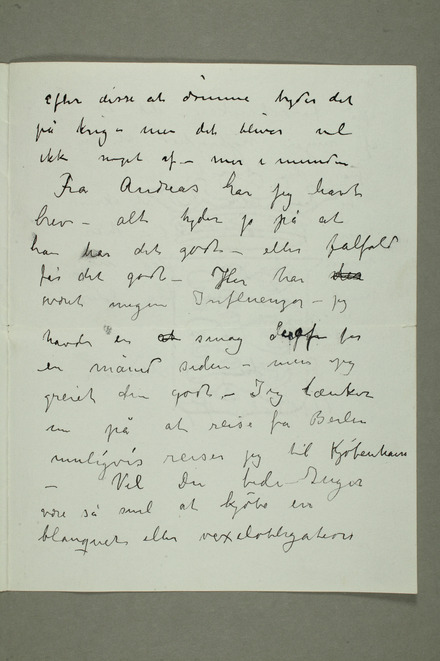 efter disse at dømme tyder det
på krig – men det bliver vel
ikke noget af – mor i munden
Fra Andreas har jeg havt
brev – alt tyder jo på at
han har det godt – eller ialfald
får det godt – Her har
vært megen Influenza – jeg
havde en smag for
en måned siden – men jeg
greiet den godt – Jeg tænker
nu på at reise fra Berlin
muligvis reiser jeg til Kjøbenhavn
– Vil Du bede Inger
være så snil at kjøbe en
blanquet eller vexelobligations